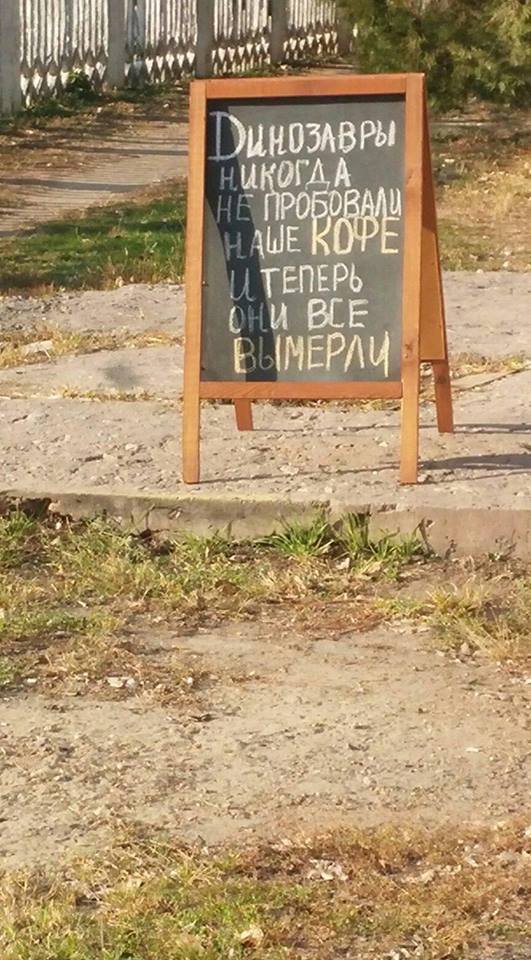 Динозавры
никогда
не пробовали
наше КОФЕ
и теперь
они все
вымерли